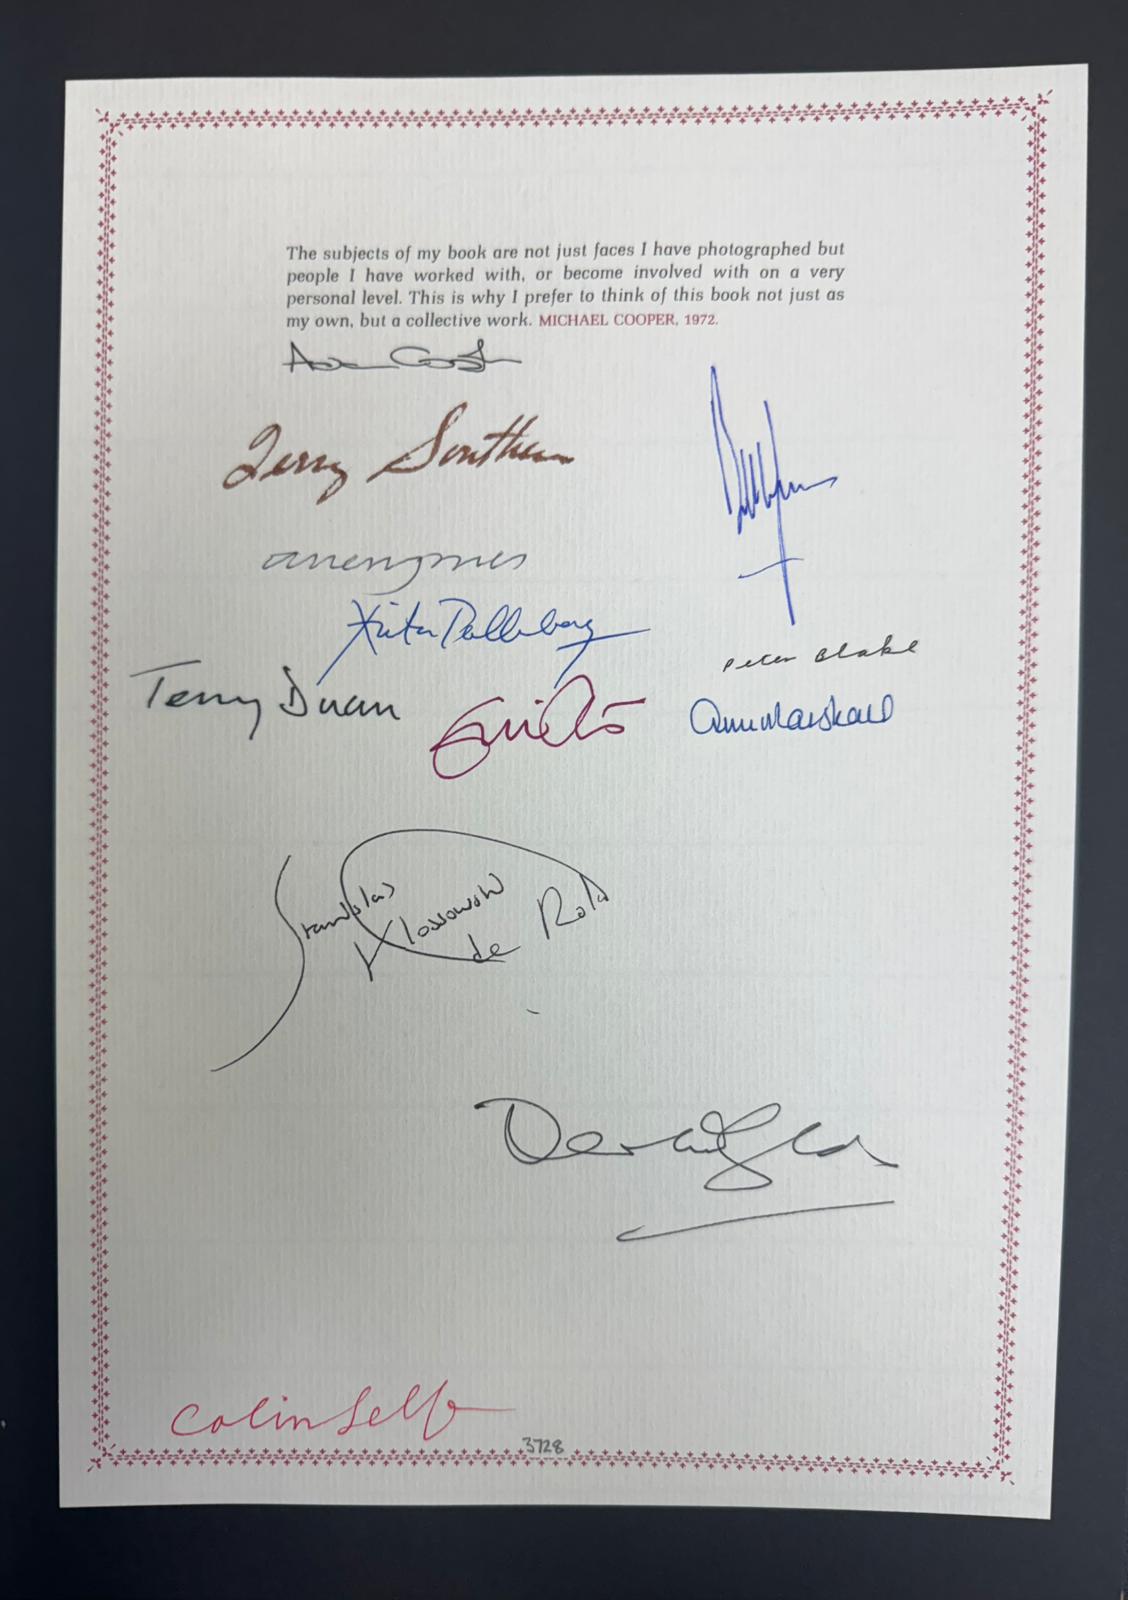 The subjects of my book are not just faces I have photographed but
people I have worked with, or become involved with on a very
personal level. This is why I prefer to think of this book not just as
my own, but a collective work. MICHAEL COOPER, 1972.
Terry Southern
Anita Pallenberg
Peter Blake
Terry Doran
Ann Marshall
Stanislas
Klossowski
de Rola
Colin Self
3728